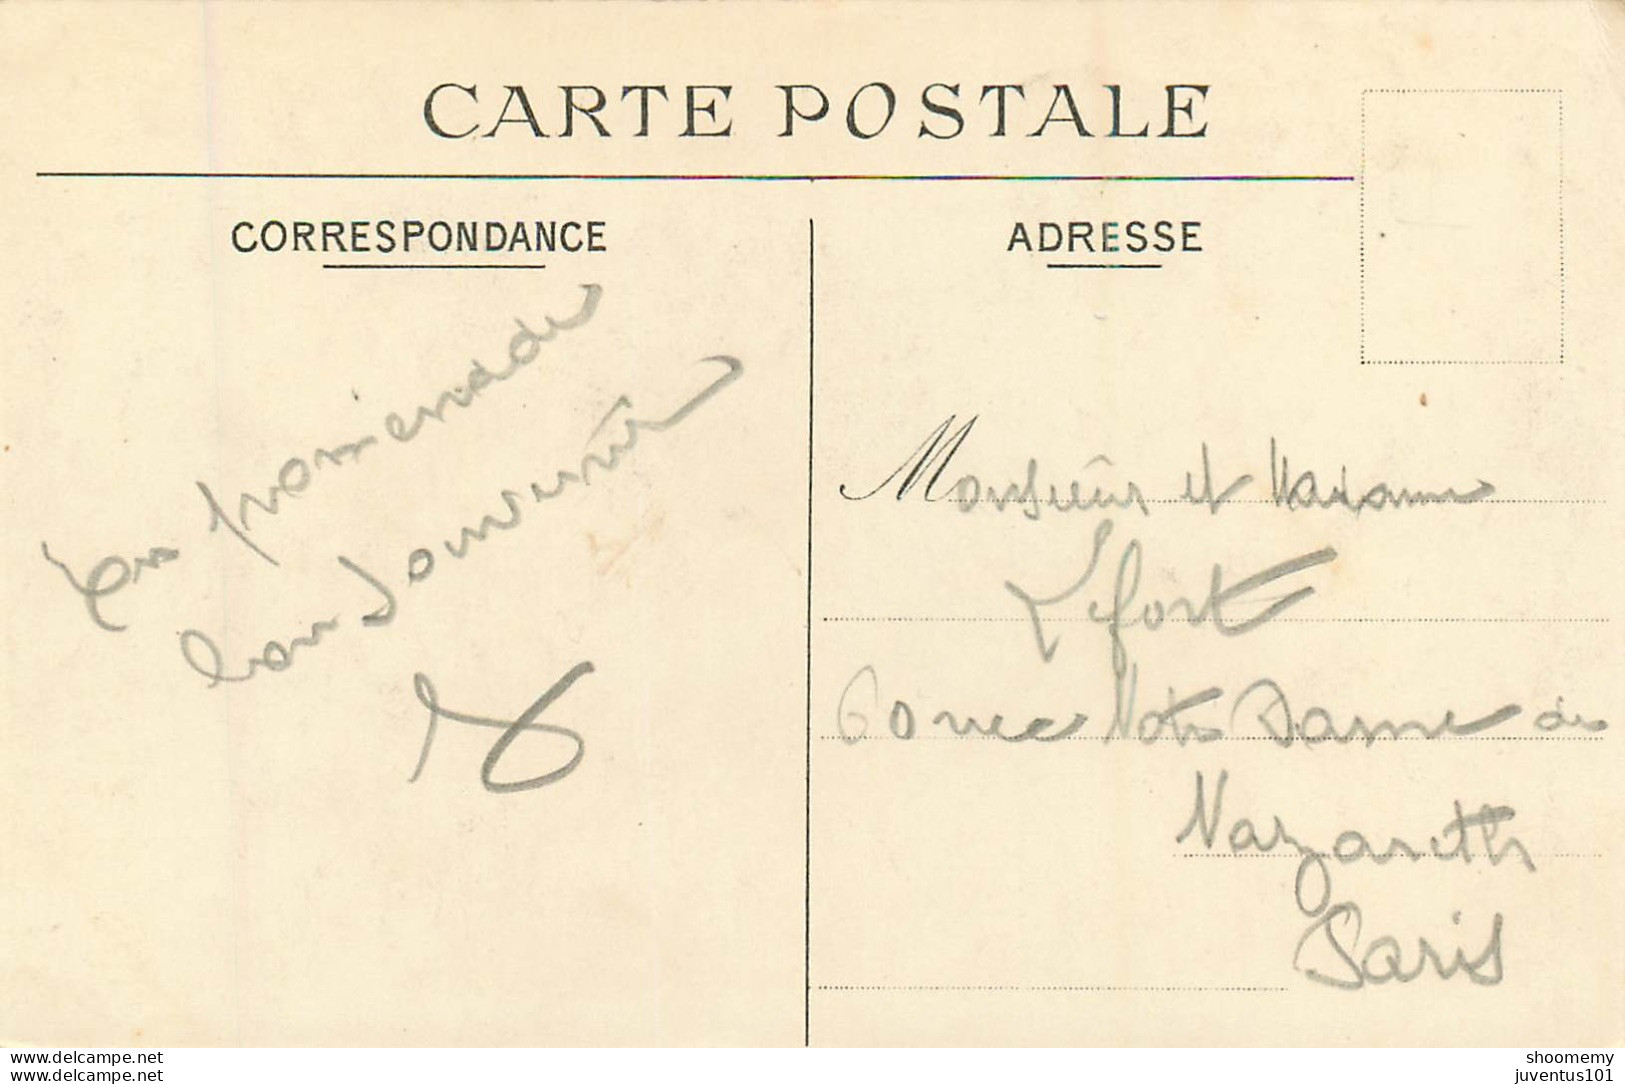 CARTE POSTALE
CORRESPONDANCE
En promenade
bon souvenir
ADRESSE
Monsieur et Madame
Lefort
60 rue Notre Dame de
Nazareth
Paris
www.delcampe.net
juventus101
shoomemy
juventus101